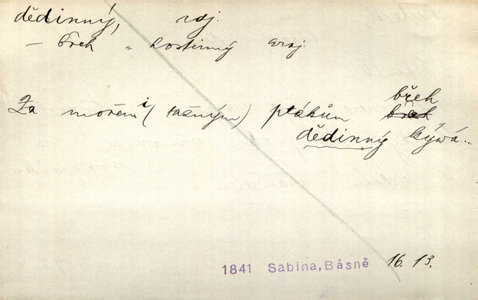 dědinný, raj.
— břeh = hostinný kraj.
břeh
Za mořem i (tažným) ptákům břeh
dědinný kývá..
1841 Sabina, Básně 16. 13.